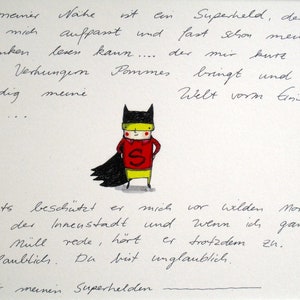 meiner Nähe ist ein Superheld, de
mich aufpasst und fast schon mei
nken lesen kann.... der mir kurz
Verhungern Pommes bringt und
dig meine Welt vorm Ein
....
S
ts beschützt er mich vor wilden Mo
der Innenstadt und wenn ich gan
Müll rede, hört er trotzdem zu.
laublich. Du bist unglaublich.
r meinen Superhelden